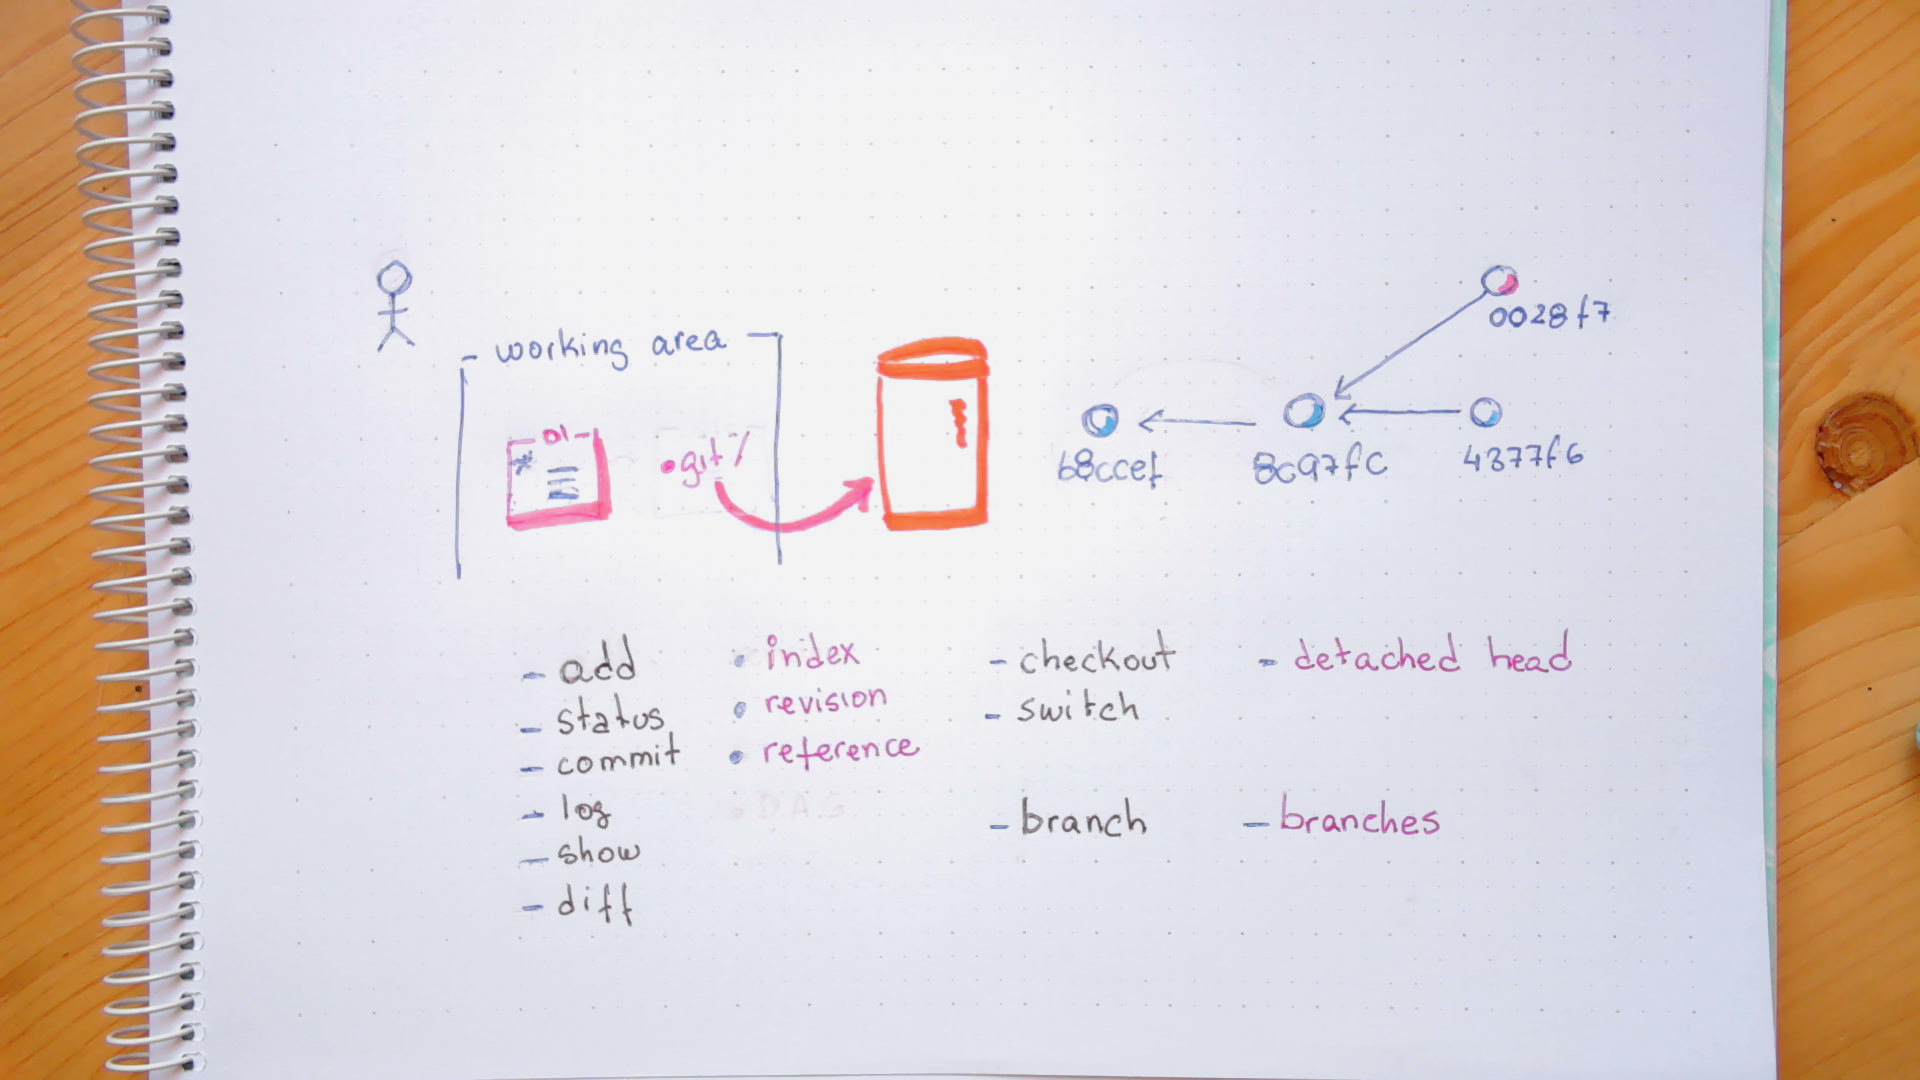 working area
01
.git/
0028f7
b8ccef
8c97fc
4377f6
- add
- status
- commit
- log
- show
- diff
• index
• revision
• reference
• D.A.G.
- checkout
- switch
- branch
- detached head
- branches